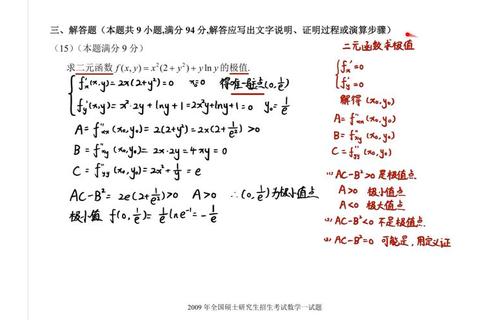 三、解答题（本题共 9 小题,满分 94 分,解答应写出文字说明、证明过程或演算步骤）
（15）（本题满分 9 分）
求二元函数 f(x, y) = x²(2 + y²) + y ln y 的极值.
{ f'x(x,y) = 2x(2+y²) = 0  x=0  得唯一驻点(0, 1/e)
f'y(x,y) = x²·2y + lny + 1 = 2x²y + lny + 1 = 0  y₀ = 1/e
A = f''xx(x₀,y₀) = 2(2+y²) = 2×(2+1/e²) >0
B = f''xy(x₀,y₀) = 2x·2y = 4xy = 0
C = f''yy(x₀,y₀) = 2x² + 1/y = e
AC-B² = 2e(2+1/e²)>0  A>0  ∴(0, 1/e)为极小值点
极小值 f(0, 1/e) = 1/e lne⁻¹ = -1/e
二元函数求极值
{ f'x=0
f'y=0
解得 (x₀, y₀)
A = f''xx (x₀, y₀)
B = f''xy (x₀, y₀)
C = f''yy (x₀, y₀)
(1) AC-B²>0 是极值点
A>0 极小值点
A<0 极大值点
(2) AC-B²<0 不是极值点
(3) AC-B²=0 可能是,用定义证
2009 年全国硕士研究生招生考试数学一试题